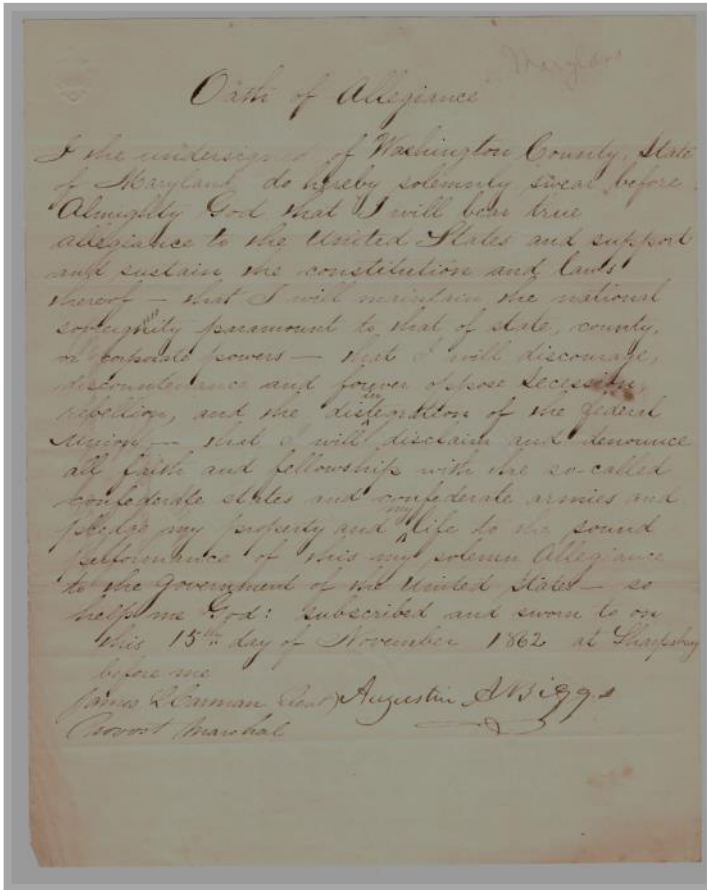 Maryland
Oath of Allegiance
I the undersigned of Washington County, State
of Maryland, do hereby solemnly swear before
Almighty God that I will bear true
allegiance to the United States and support
and sustain the constitution and laws
thereof — that I will maintain the national
sovereignity paramount to that of state, county,
or corporate powers — that I will discourage,
discountenance and forever oppose secession,
rebellion, and the disintegration of the federal
Union — that I will disclaim and denounce
all faith and fellowship with the so-called
confederate states and confederate armies and
pledge my property and my life to the sound
performance of this my solemn Allegiance
to the Government of the United States — so
help me God: subscribed and sworn to on
this 15th day of November 1862 at Sharpsburg
before me
James Augustin A Biggs
Provost Marshal